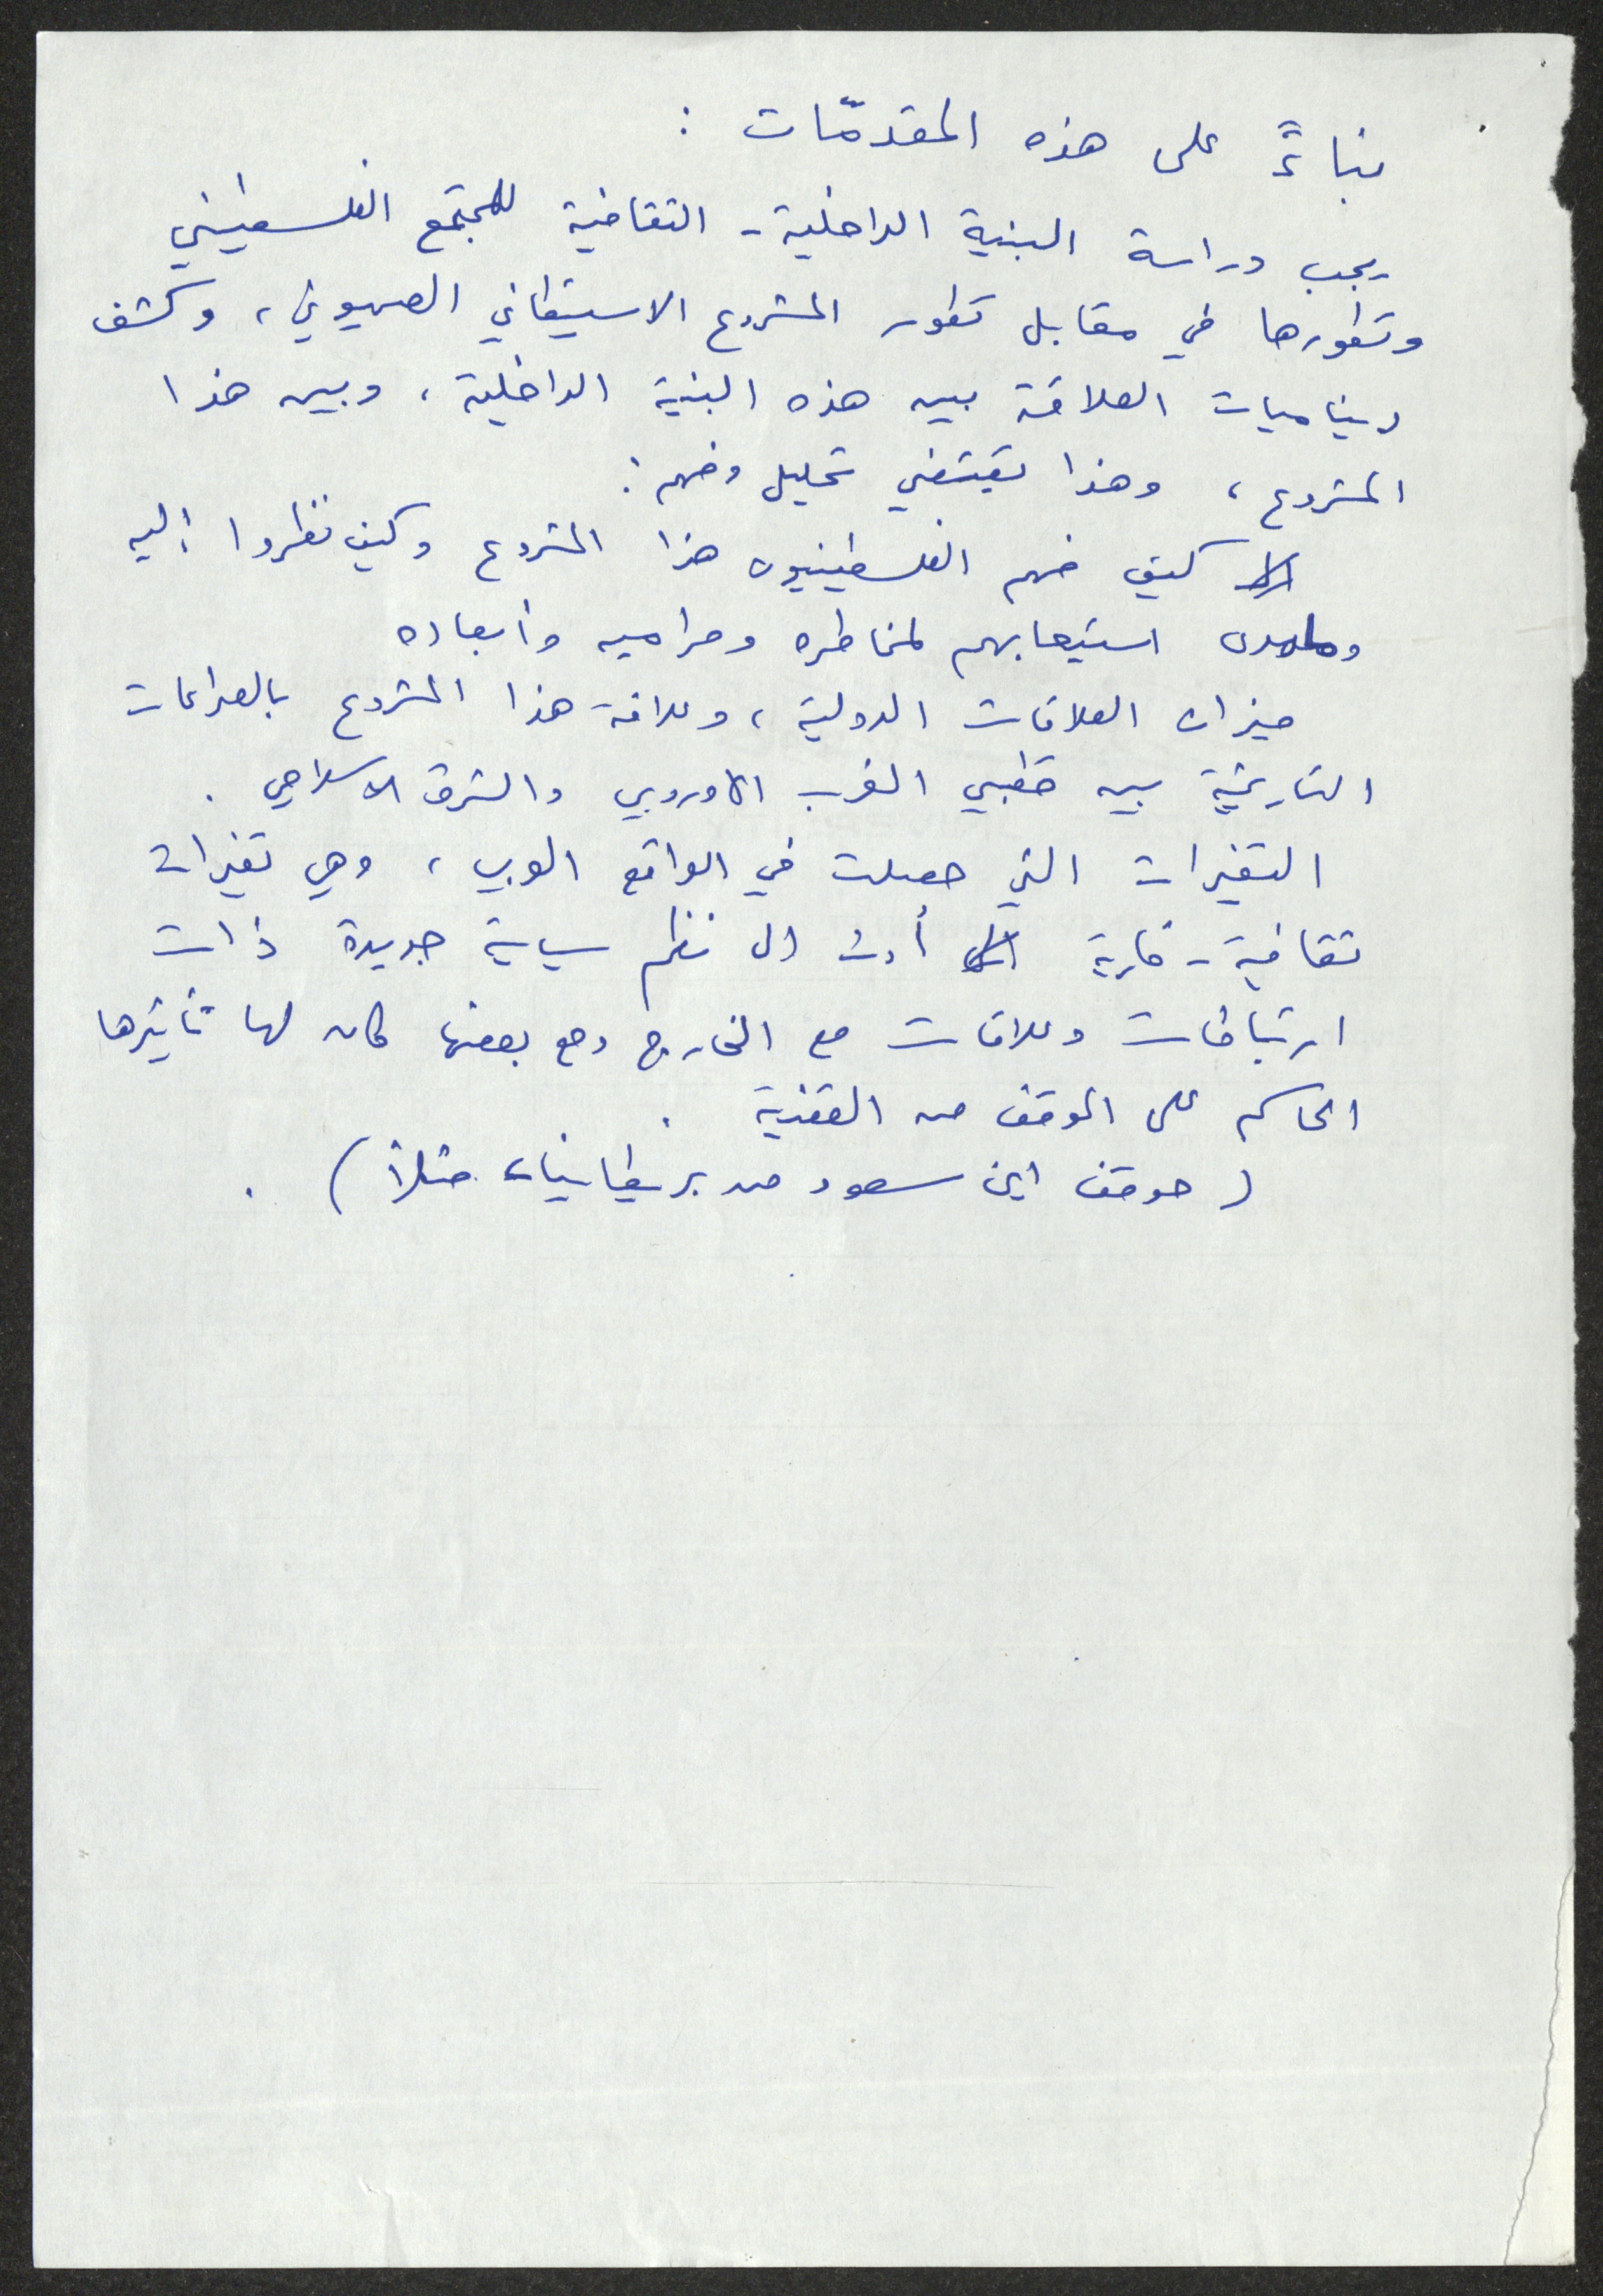 بناءً على هذه المقدمّات :
يجب دراسة البنية الداخلية - الثقافية للمجتمع الفلسطيني
وتطورها في مقابل تطور المشروع الاستيطاني الصهيوني، وكشف
ديناميات العلاقة بين هذه البنية الداخلية، وبين هذا
المشروع، وهذا يقتضي تحليل وفهم:
كيف فهم الفلسطينيون هذا المشروع وكيف نظروا إليه
ومدى استيعابهم لمخاطره ومراميه وأبعاده
ميزان العلاقات الدولية، وعلاقة هذا المشروع بالصراعات
التاريخية بين قطبي الغرب الاوروبي والشرق الاسلامي.
التغيرات التي حصلت في الواقع العربي، وهي تغيرات
ثقافية - فكرية أدت الى نظم سياسية جديدة ذات
ارتباطات وعلاقات مع الخارج ومع بعضها كان لها تأثيرها
الحاكم على الموقف من القضية.
(موقف ابن سعود من بريطانيا، مثلاً).